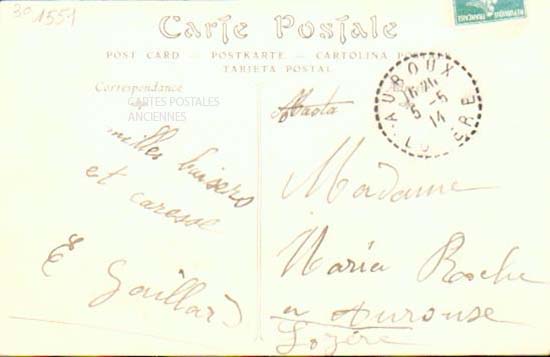 30 1551
Carte Postale
POST CARD — POSTKARTE — CARTOLINA POSTALE
TARJETA POSTAL
Correspondance
CARTES POSTALES
ANCIENNES
milles baisers
et caresse
E Gaillard
REPUBLIQUE FRANÇAISE
AUROUX
5-5
14
LOZERE
Madame
Maria Roche
a Aurouse
Lozére